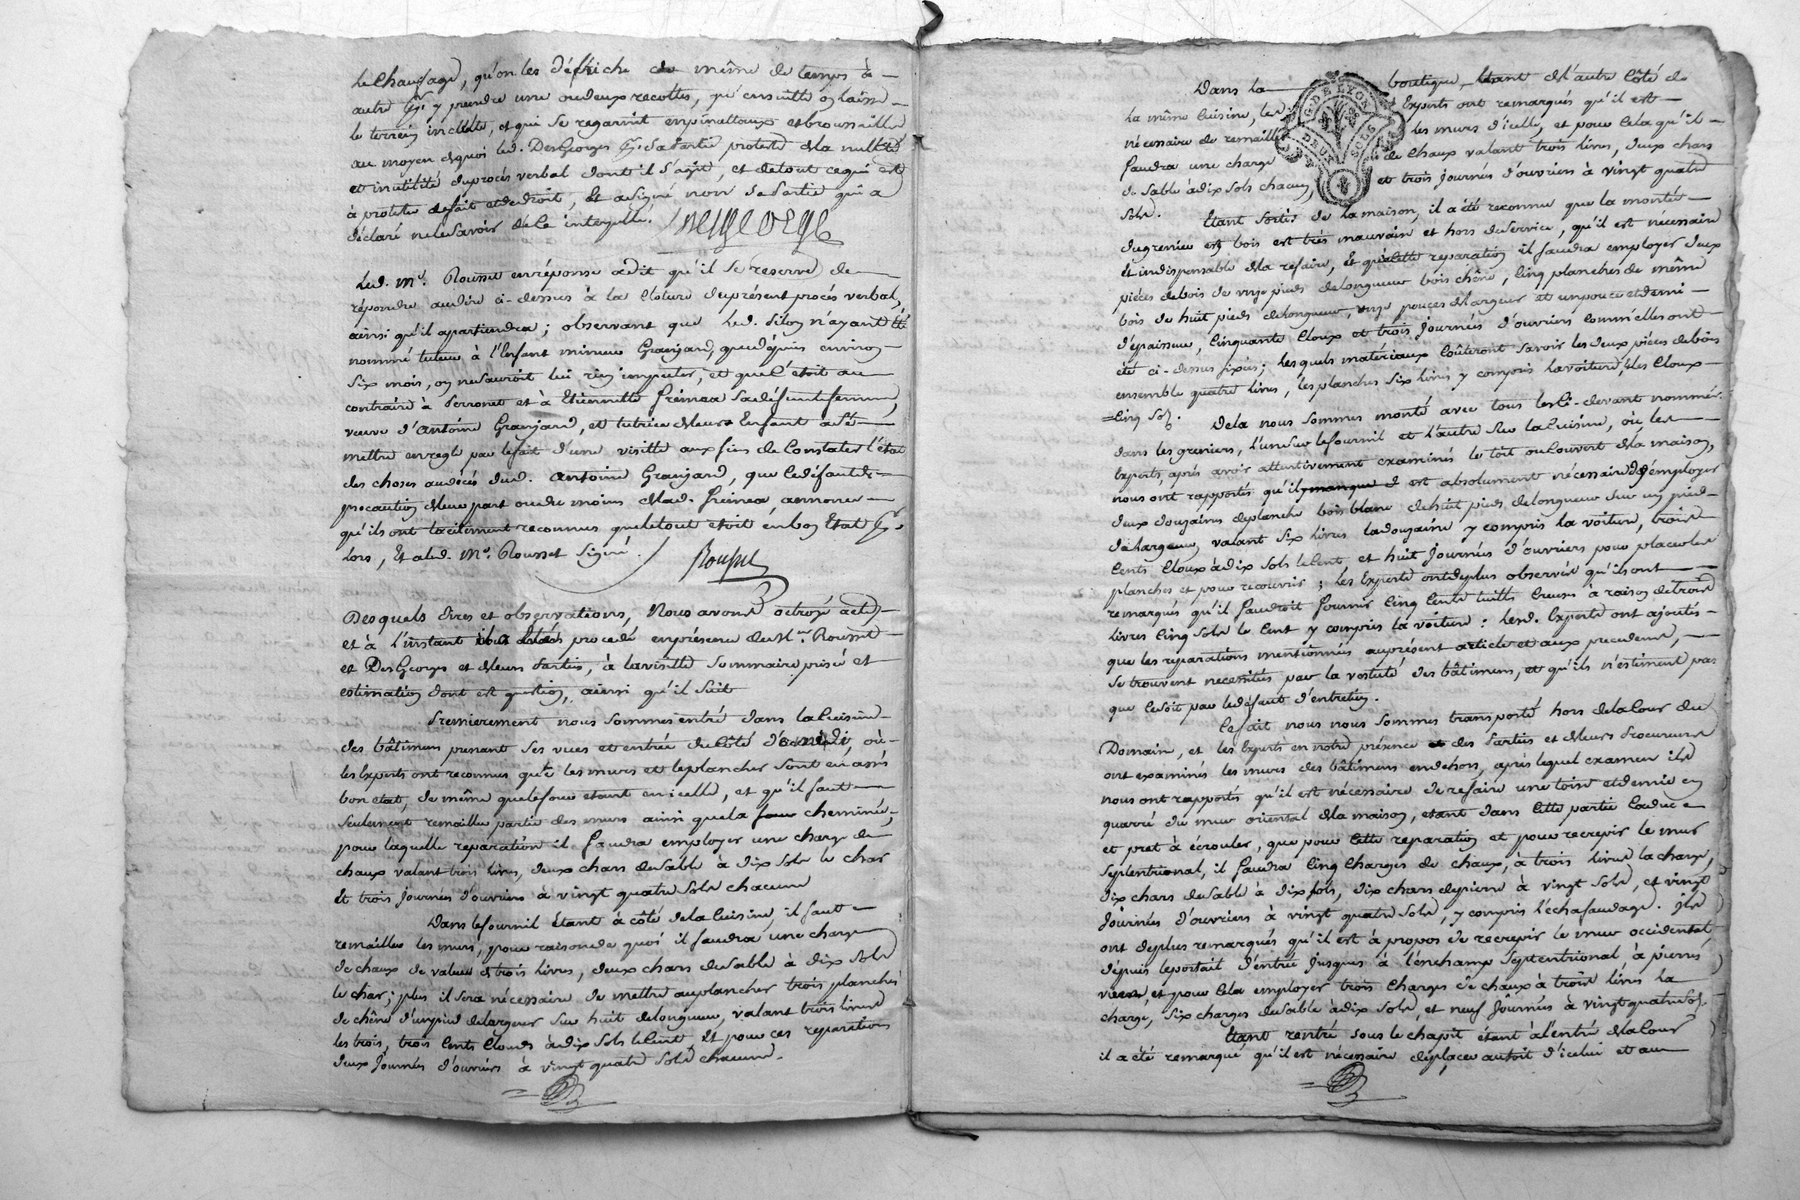 le chaufage, qu'on les défriche de même de temps à
autre pr. y prendre une ou deux recoltes, qu'ensuitte on laisse
le terrein inculte, et qui se regarnit en pinattaux et broussailles
au moyen de quoi led. DesGeorges pr. sa Partie proteste de la nullité
et inutilité du procés verbal dont il s'agit, et de tout ce qui est
à protester de fait et de droit, Et a signé non sa Partie qui a
déclaré ne le savoir de ce interpellé. Desgeorge
Led. Me. Rousset en réponse a dit qu'il se reserve de
répondre au dire ci-dessus à la Cloture du présent procés verbal,
ainsi qu'il apartiendra; observant que led. Filon n'ayant été
nommé tuteur à l'Enfant mineur Granjard, que depuis environ
six mois, on ne sauroit lui rien imputer, et que c'étoit au
contraire à Perronet et à Etiennette Freinea sa défunte femme,
veuve d'Antoine Granjard, et tutrice de leurs Enfant à se
mettre en regle par le fait d'une visitte aux fins de Constater l'état
des choses au décés dud. Antoine Granjard, que le défaut de
précaution de leur part ou du moins de lad. Freinea, annonce
qu'ils ont tacitement reconnus que le tout etoit en bon Etat pr.
lors, Et a led. Me. Rousset signé. Rousset
Desquels dires et observations, Nous avons octroyé acte,
et à l'instant procedé en présence de Me. Rousset
et DesGeorges et de leurs Parties, à la visitte sommaire prisée et
estimation dont est question, ainsi qu'il suit
Premierement nous sommes entré dans la cuisine
des bâtimens prenant ses vues et entrée du côté de midi, où
les Experts ont reconnus que les murs et le plancher sont en assés
bon etat, de même que le four etant en icelle, et qu'il faut
seulement remailler partie des murs ainsi que la cheminée,
pour laquelle reparation il faudra employer une charge de
chaux valant trois livres, deux chars de sable à dix sols le char
Et trois journées d'ouvriers à vingt quatre sols chacune
Dans le fournil Etant à côté de la Cuisine, il faut
remailler les murs, pour raison de quoi il faudra une charge
de chaux de valeur de trois livres, deux chars de sable à dix sols
le char; plus il sera nécessaire de mettre au plancher trois planches
de chêne d'un pied de largeur sur huit de longueur, valant trois livres
les trois, trois cents Clouds à dix sols le Cent, Et pour ces reparations
deux journées d'ouvriers à vingt quatre sols chacune.
Dans la boutique, étant de l'autre côté de
la même Cuisine, les Experts ont remarqués qu'il est
nécessaire de remailler les murs d'icelle, et pour cela qu'il
faudra une charge de chaux valant trois livres, deux chars
de sable à dix sols chacun, et trois journées d'ouvriers à vingt quatre
sols.
G. DE LYON
DEUX SOLS
Etant sortis de la maison, il a été reconnu que la montée
du grenier en bois est trés mauvaise et hors de service, qu'il est nécessaire
Et indispensable de la refaire, Et qu'à cette reparation il faudra employer deux
pièces de bois de onze pieds de longueur bois chêne, Cinq planches de même
bois de huit pieds de longueur, onze pouces de largeur et un pouce et demi
d'épaisseur, Cinquante Cloux et trois journées d'ouvriers comm'elles ont
été ci-dessus fixées; lesquels matériaux Coûteront savoir les deux pièces de bois
ensemble quatre livres, les planches six livres y compris la voiture, & les Cloux
Cinq sols. De la nous sommes monté avec tous les Ci-devant nommés
dans les greniers, l'un sur le fournil et l'autre sur la Cuisine, où les
Experts, aprés avoir attentivement examinés le toit ou couvert de la maison,
nous ont rapportés qu'il est absolument nécessaire d'employer
deux douzaines de planche bois blanc de huit pieds de longueur sur un pied
de largeur, valant six livres la douzaine y compris la voiture, trois
Cents Cloux à dix sols le Cent, et huit journées d'ouvriers pour placer les
planches et pour recouvrir; les Experts ont de plus observés qu'ils ont
remarqués qu'il faudroit fournir Cinq Cents tuiles creuses à raison de trois
livres Cinq sols le Cent y compris la voiture: lesd. Experts ont ajoutés
que les reparations mentionnées au présent article et aux precedents,
se trouvent necessitées par la vetusté des bâtimens, et qu'ils n'estiment pas
que ce soit par le défaut d'entretien.
Ce fait nous nous sommes transporté hors de la Cour du
Domaine, et les Experts en notre présence et des Parties et de leurs Procureurs
ont examinés les murs des bâtimens en dehors, aprés lequel examen ils
nous ont rapportés qu'il est nécessaire de refaire une toise et demie en
quarré du mur oriental de la maison, etant dans cette partie Caduc
et pret à écrouler, que pour cette reparation et pour recrepir le mur
septentrional, il faudra Cinq Charges de chaux, à trois livres la charge,
dix chars de sable à dix sols, dix chars de pierre à vingt sols, et vingt
journées d'ouvriers à vingt quatre sols, y compris l'échafaudage. Ils
ont de plus remarqués qu'il est à propos de recrepir le mur occidental,
depuis le portail d'entrée jusques à l'enchamp septentrional à pierres
vues, et pour cela employer trois Charges de chaux à trois livres la
charge, six charges de sable à dix sols, et neuf journées à vingt quatre sols.
Etant rentré sous le chapit étant à l'entrée de la Cour
il a été remarqué qu'il est nécessaire de placer au toit d'icelui et au